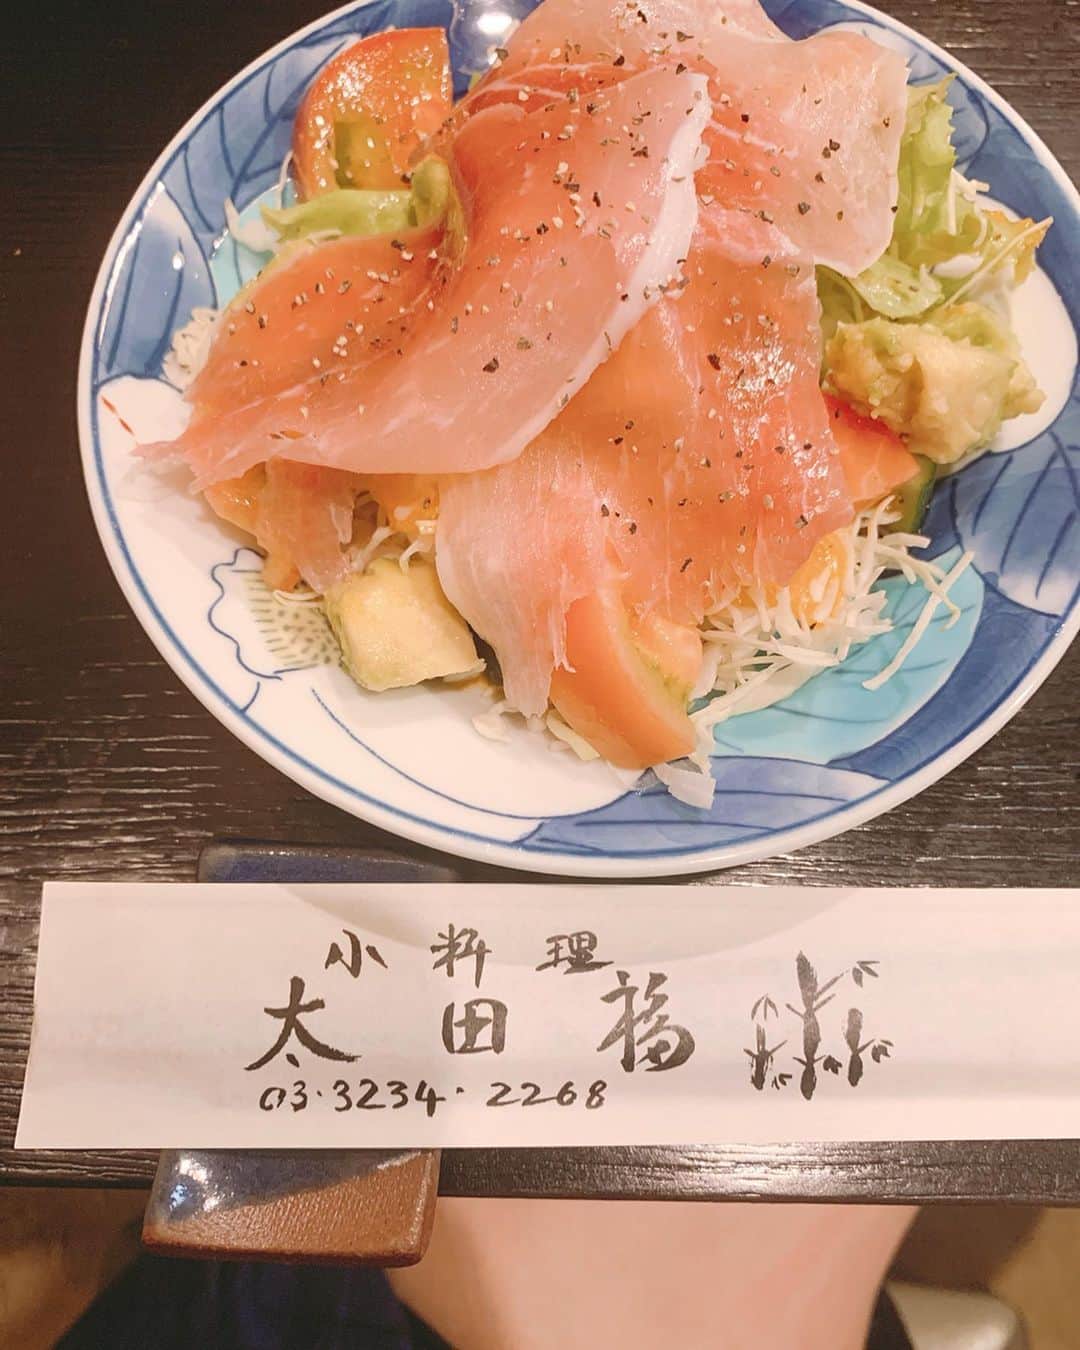 小料理
太田福
03・3234・2268